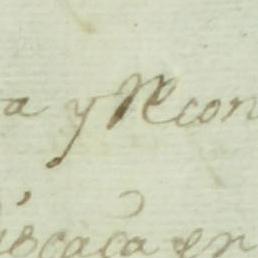 a y Recon
iscaca en